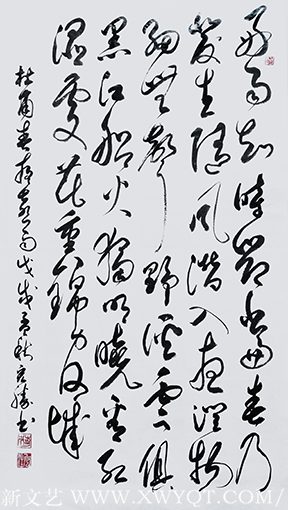 好雨知时节当春乃
发生随风潜入夜润物
细无声野径云俱
黑江船火独明晓看红
湿处花重锦官城
杜甫春夜喜雨戊戌之秋
新文艺 WWW.XWYQT.COM